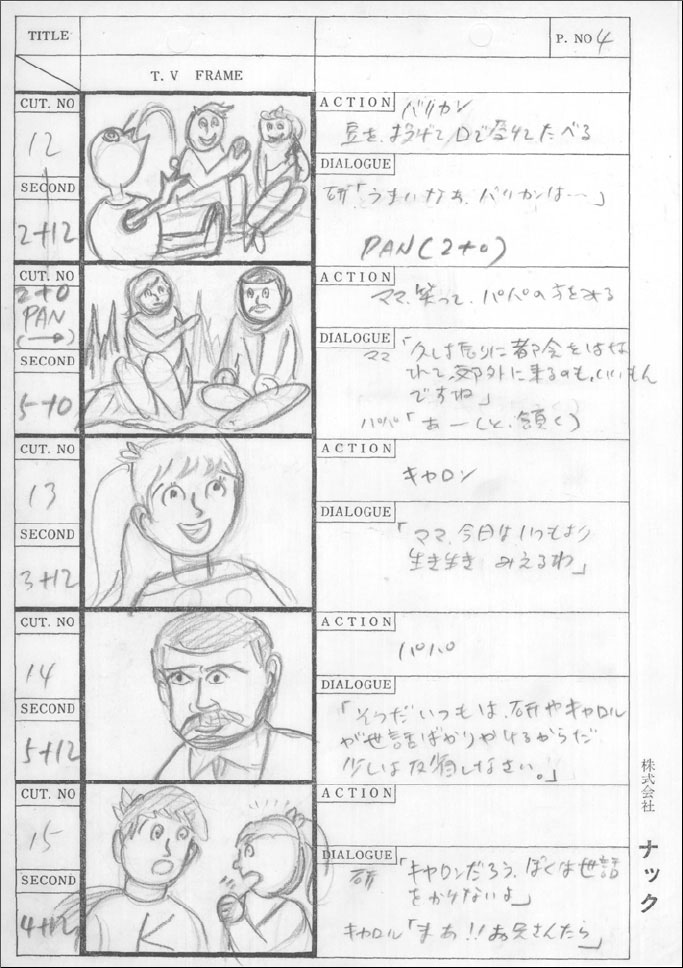 TITLE
P. NO 4
T. V FRAME
CUT. NO
12
SECOND
2+12
ACTION
バリカン
豆を、投げて口で受けてたべる
DIALOGUE
研「うまいなぁ、バリカンは――」
PAN(2+0)
CUT. NO
2+0
PAN
(→)
SECOND
5+0
ACTION
ママ、笑って、パパの方をみる
DIALOGUE
ママ「久し振りに都会をはな
れて、郊外に来るのも、いいもん
ですね」
パパ「あーしと、頷く)
CUT. NO
13
SECOND
3+12
ACTION
キャロン
DIALOGUE
「ママ、今日はいつもより
生き生き みえるわ」
CUT. NO
14
SECOND
5+12
ACTION
パパ
DIALOGUE
「そうだいつもは、研やキャロル
が世話ばかりやけるからだ
少しは反省しなさい。」
CUT. NO
15
SECOND
4+12
ACTION
DIALOGUE
研「キャロンだろう、ぼくは世話
をかけないよ」
キャロル「まあ!!お兄さんたら」
K
株式会社 ナック